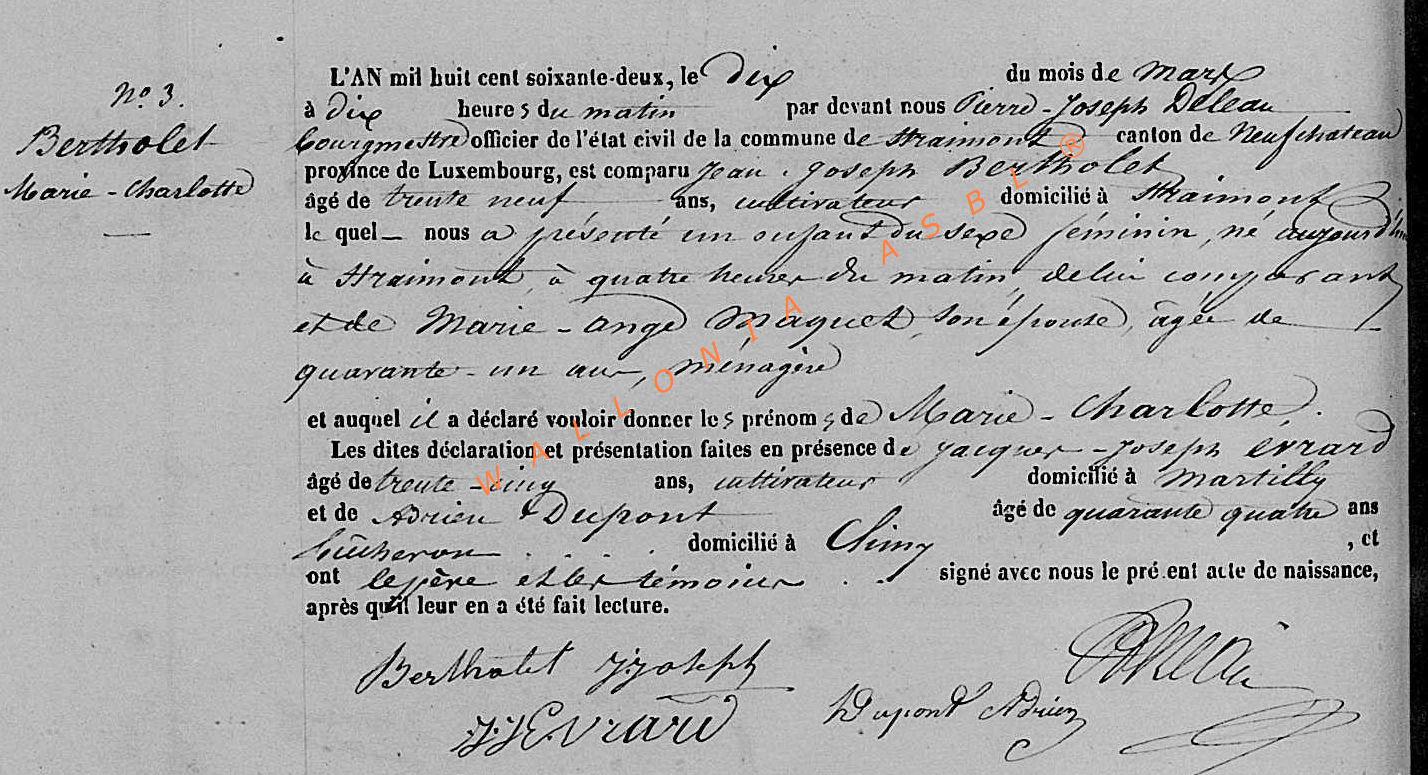 N° 3.
Bertholet
Marie-Charlotte
L'AN mil huit cent soixante-deux, le dix du mois de mars
à dix heures du matin par devant nous Pierre-Joseph Deleau
bourgmestre officier de l'état civil de la commune de Straimont canton de Neufchateau
province de Luxembourg, est comparu Jean-Joseph Bertholet
âgé de trente neuf ans, cultivateur domicilié à Straimont
lequel nous a présenté un enfant du sexe féminin, né aujourd'hui
à Straimont, à quatre heures du matin, de lui comparant
et de Marie-Ange Maquet, son épouse, âgée de
quarante-un ans, ménagère
et auquel il a déclaré vouloir donner les prénoms de Marie-Charlotte.
Les dites déclaration et présentation faites en présence de Jacques-Joseph Evrard
âgé de trente-cinq ans, cultivateur domicilié à Martilly
et de Adrien Dupont âgé de quarante quatre ans
bûcheron . . . . domicilié à Chiny , et
ont le père et les témoins . . signé avec nous le pré ent acte de naissance,
après qu'il leur en a été fait lecture.
Bertholet J Joseph
J J Evrard
Dupont Adrien
WALLONIA ASBL ®